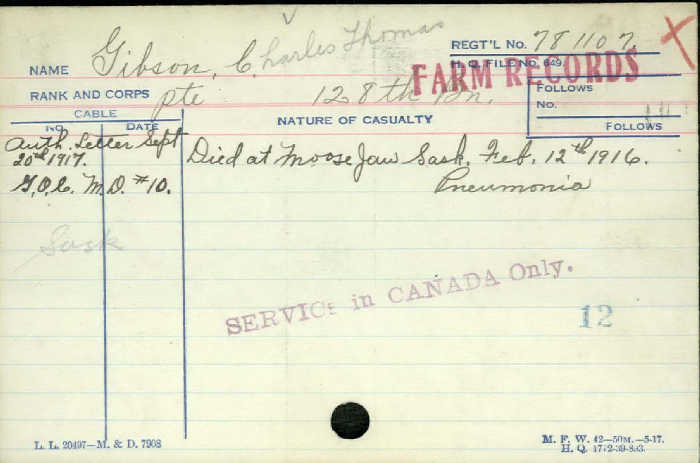 NAME Gibson, Charles Thomas
REGT'L No. 781107
H. Q. FILE No. 649
FARM RECORDS
RANK AND CORPS Pte 128th Bn.
FOLLOWS
No.
FOLLOWS
CABLE
No. DATE
NATURE OF CASUALTY
Auth. Letter Sept
20th 1917.
G.O.C. M.D. #10.
Died at Moose Jaw Sask. Feb. 12th 1916.
Pneumonia
Sask
SERVICE in CANADA Only.
12
L. L. 20497—M. & D. 7908
M. F. W. 42—50M.—5-17.
H. Q. 1772-39-893.